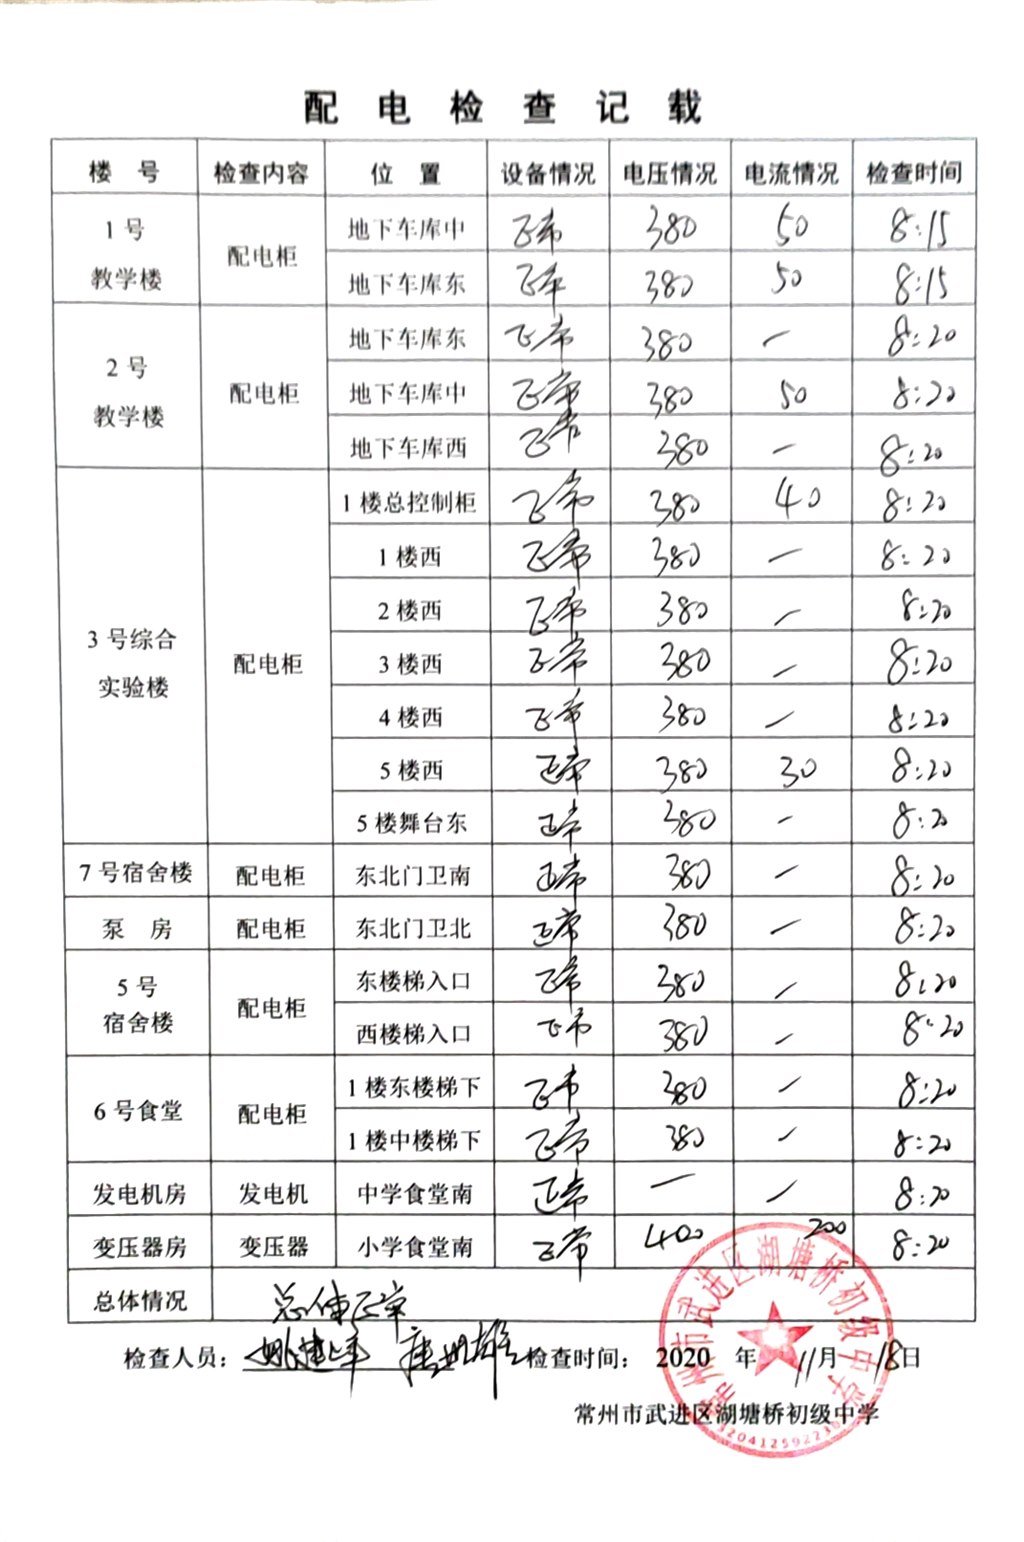 配电检查记载
楼 号 检查内容 位 置 设备情况 电压情况 电流情况 检查时间
1号教学楼 配电柜 地下车库中 正常 380 50 8:15
地下车库东 正常 380 50 8:15
2号教学楼 配电柜 地下车库东 正常 380 — 8:20
地下车库中 正常 380 50 8:20
地下车库西 正常 380 — 8:20
3号综合实验楼 配电柜 1楼总控制柜 正常 380 40 8:20
1楼西 正常 380 — 8:20
2楼西 正常 380 — 8:20
3楼西 正常 380 — 8:20
4楼西 正常 380 — 8:20
5楼西 正常 380 30 8:20
5楼舞台东 正常 380 — 8:20
7号宿舍楼 配电柜 东北门卫南 正常 380 — 8:20
泵 房 配电柜 东北门卫北 正常 380 — 8:20
5号宿舍楼 配电柜 东楼梯入口 正常 380 — 8:20
西楼梯入口 正常 380 — 8:20
6号食堂 配电柜 1楼东楼梯下 正常 380 — 8:20
1楼中楼梯下 正常 380 — 8:20
发电机房 发电机 中学食堂南 正常 — — 8:20
变压器房 变压器 小学食堂南 正常 400 200 8:20
总体情况 总体正常
检查人员: 检查时间: 2020 年 11月 18日
常州市武进区湖塘桥初级中学
常州市武进区湖塘桥初级中学